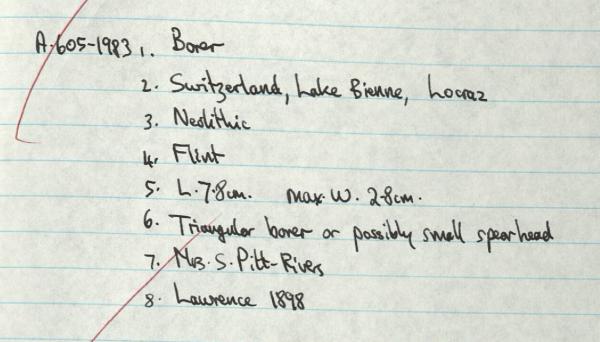 A.605-1983 1. Borer
2. Switzerland, Lake Bienne, Locraz
3. Neolithic
4. Flint
5. L. 7.8cm. max. W. 2.8cm.
6. Triangular borer or possibly small spearhead
7. Mrs. S. Pitt-Rivers
8. Lawrence 1898